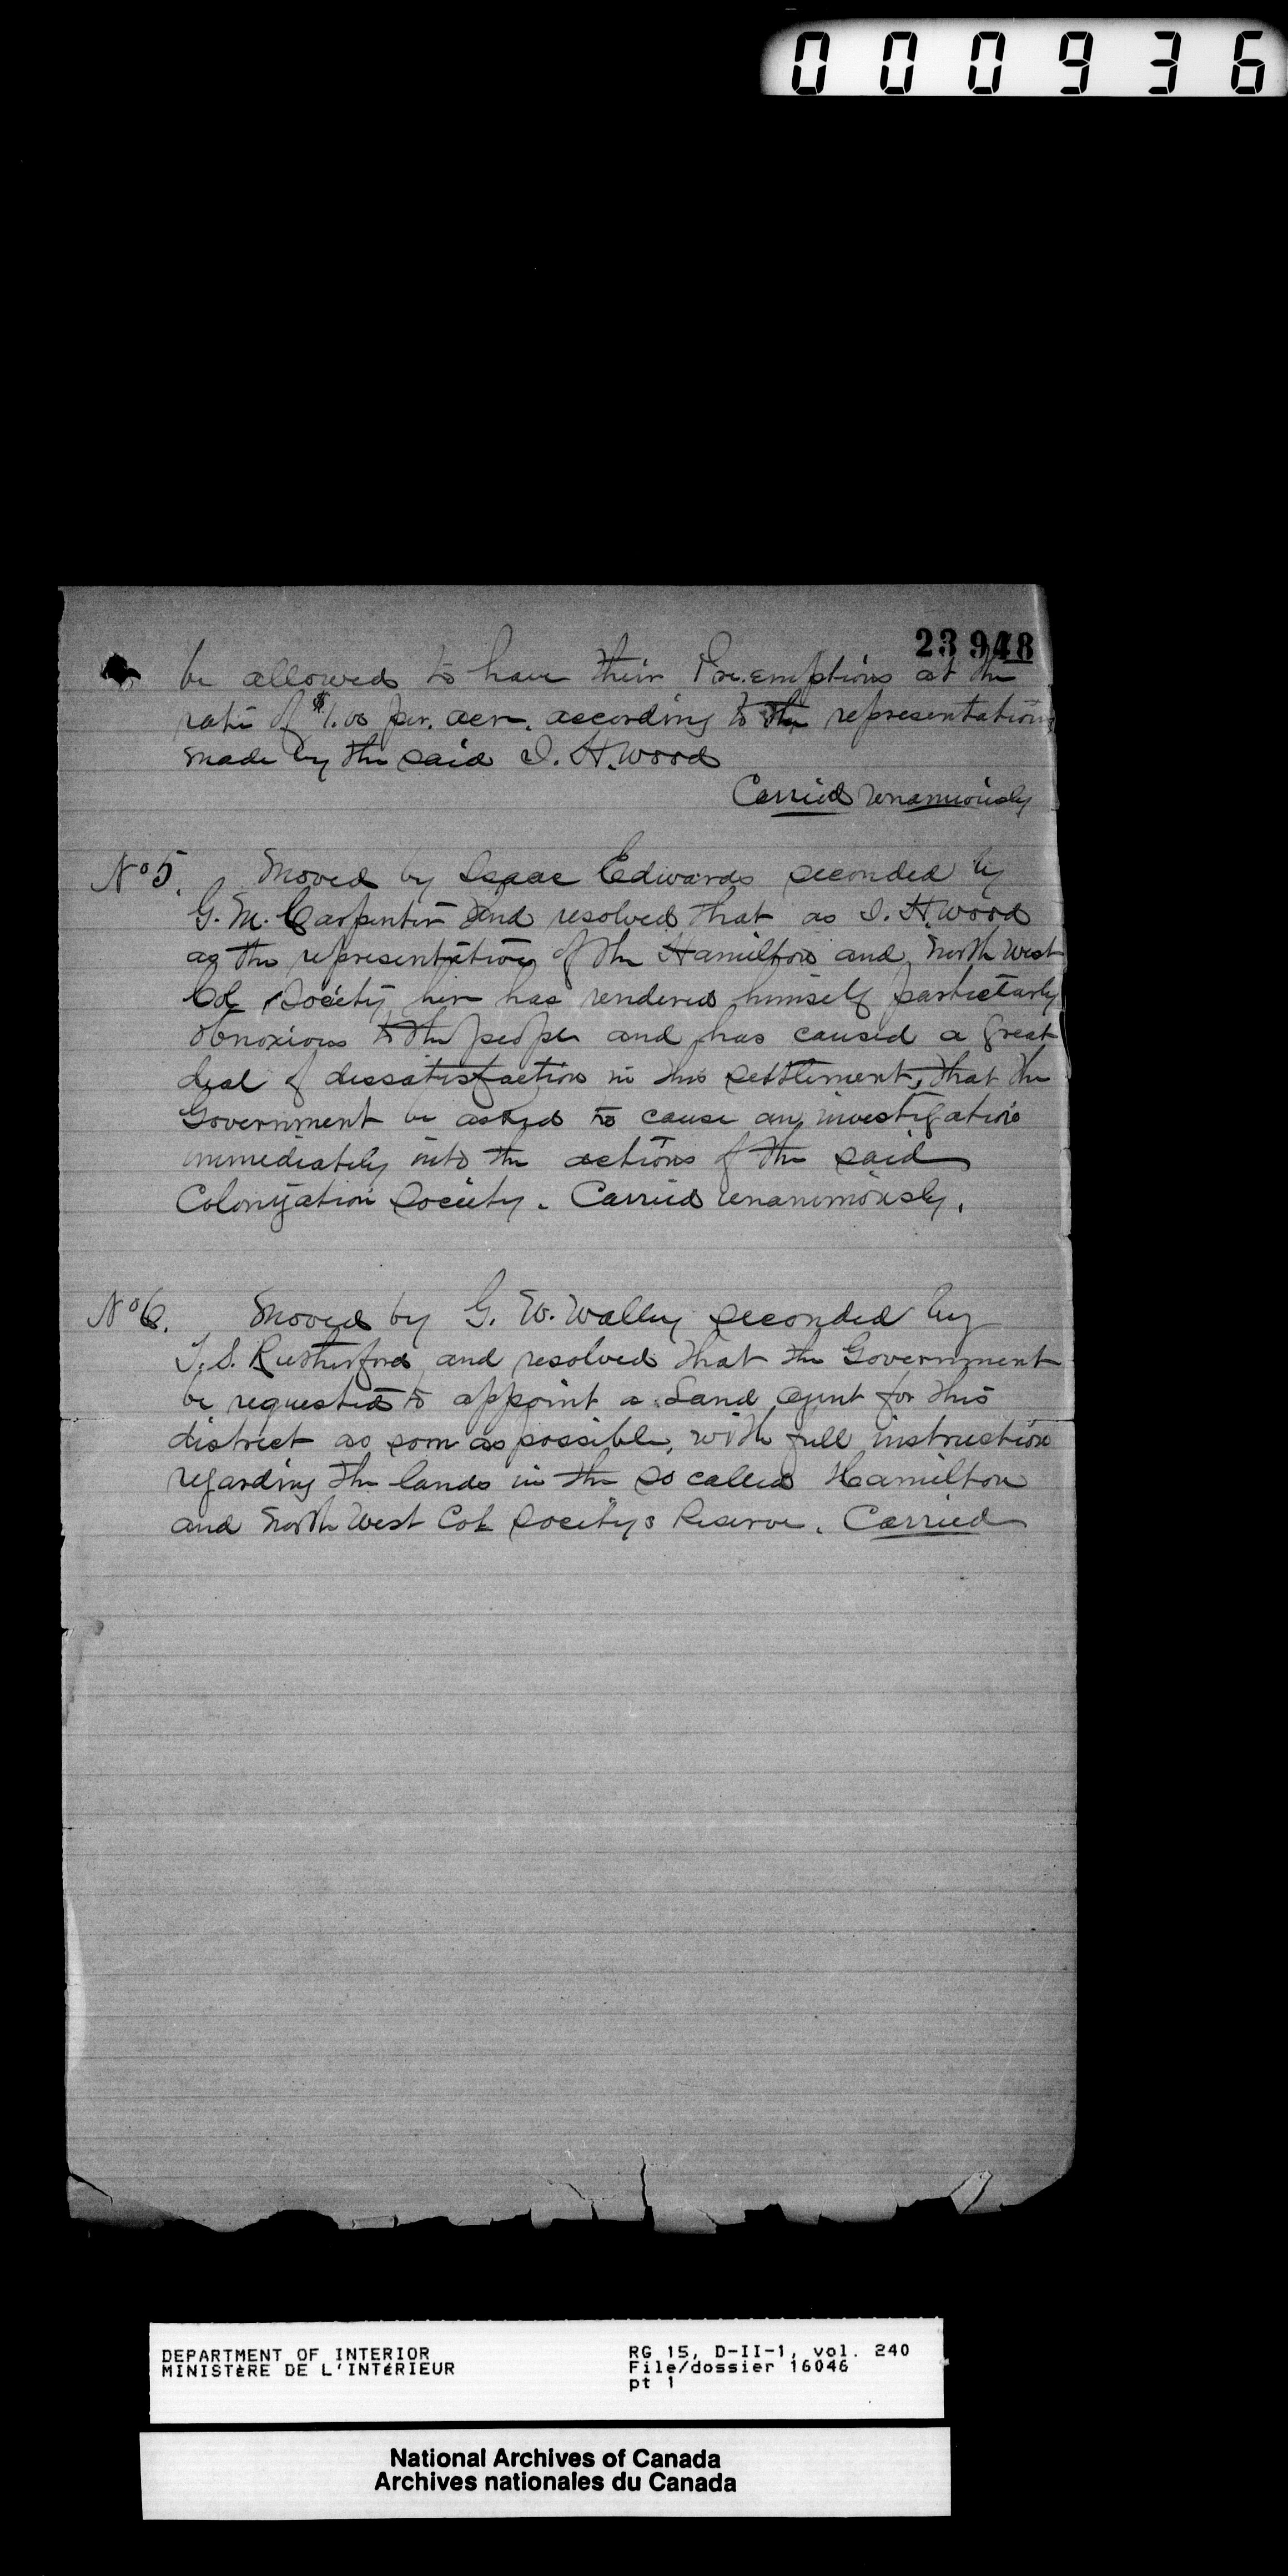 000936
23948
be allowed to have their Pre.emptions at the
rate of $1.00 per. acre. according to the representations
made by the said I. H. Wood
Carried unanimously
No 5. Moved by Isaac Edwards seconded by
G. M. Carpenter and resolved that as I. H. Wood
as the representative of the Hamilton and North West
Col Society here has rendered himself particularly
obnoxious to the people and has caused a great
deal of dissatisfaction in this settlement, that the
Government be asked to cause an investigation
immediately into the actions of the said
Colonization Society. Carried unanimously.
No 6. Moved by G. W. Walley seconded by
T. S. Rutherford and resolved that the Government
be requested to appoint a Land Agent for this
district as soon as possible, with full instructions
regarding the lands in the so called Hamilton
and North West Col Society's Reserve. Carried
DEPARTMENT OF INTERIOR
MINISTÈRE DE L'INTÉRIEUR
RG 15, D-II-1, vol. 240
File/dossier 16046
pt 1
National Archives of Canada
Archives nationales du Canada